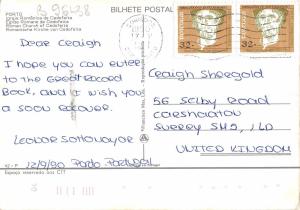 BILHETE POSTAL
PORTO
Igreja Românica de Cedofeita
Eglise Romane de Cedofeita
Roman Church of Cedofeita
Romanische Kirche von Cedofeita
Dear Craigh
I hope you can enter
to the Great Record
Book, and I wish you
a soon recover.
Leonor Sottomayor
12/9/90 Porto. Portugal
62 - P
Espaço reservado aos CTT
32.-
32.-
Craigh Sheegold
56 Selby Road
Carshaaton
Surrey SM5, 1LD
United Kingdom